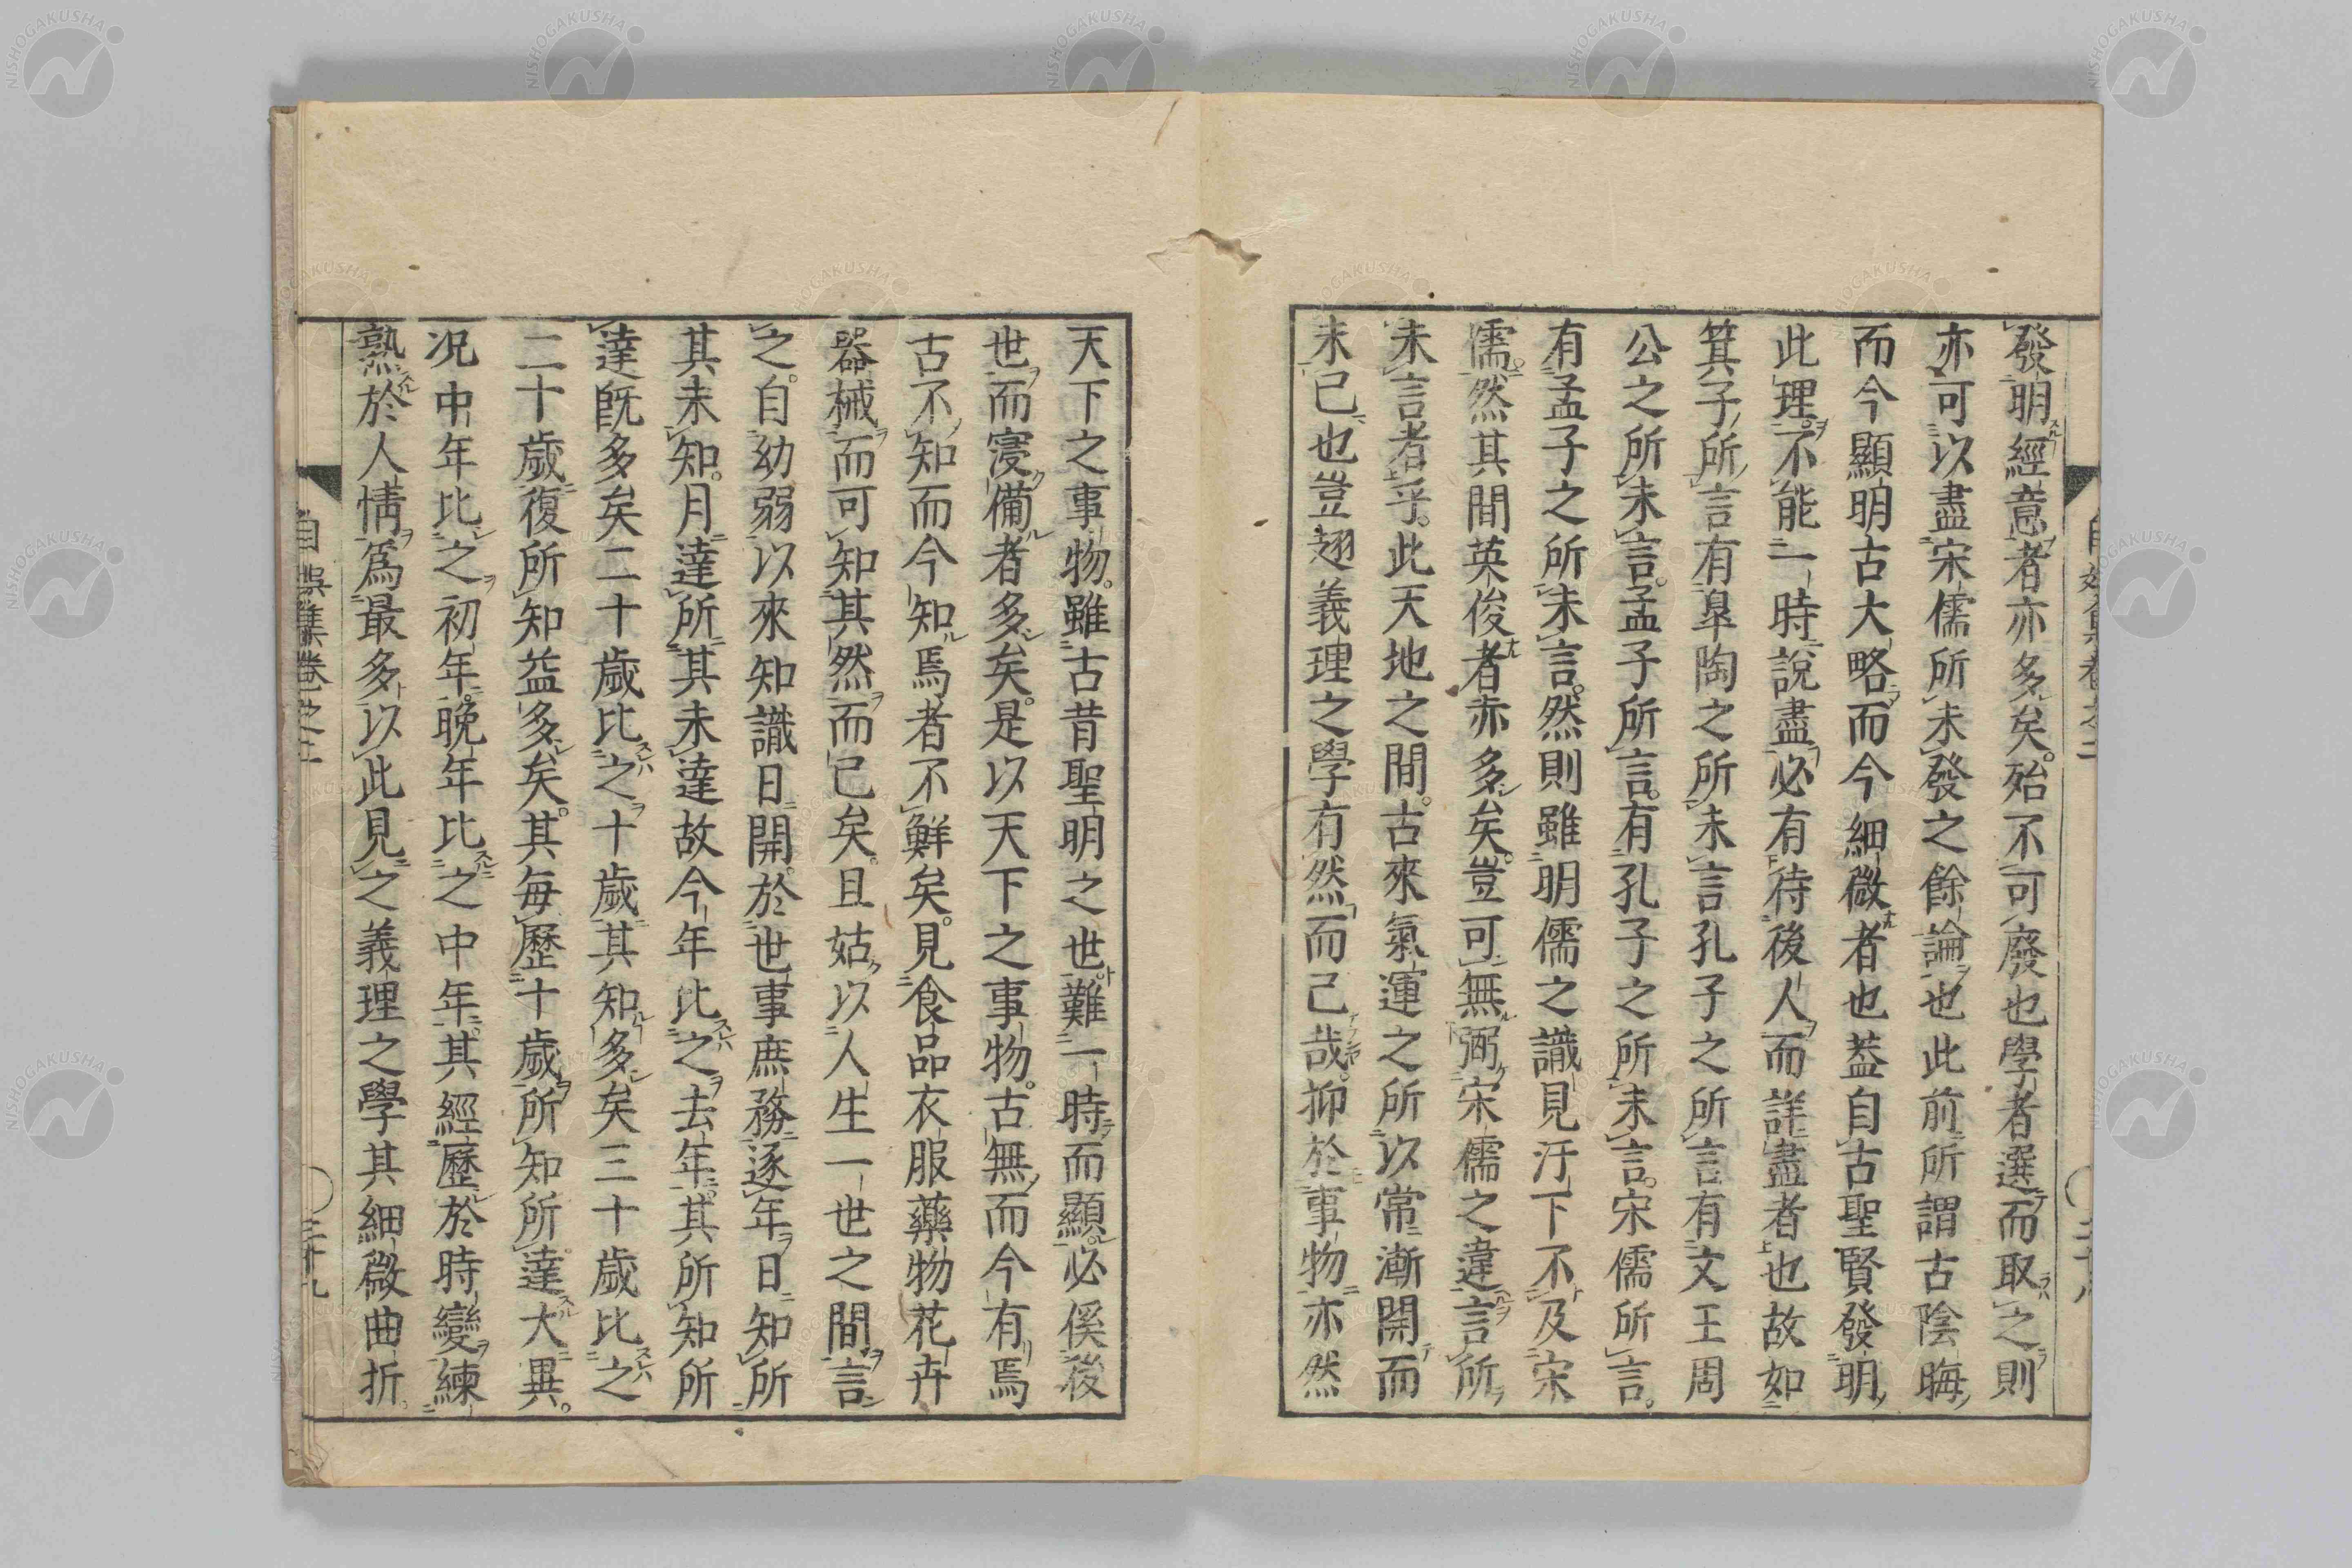 發明經意者亦多矣。殆不可廢也學者選而取之則
亦可以盡宋儒所未發之餘論也此前所謂古陰晦
而今顯明古大略而今細微者也葢自古聖賢發明
此理。不能一時說盡必有待後人而詳盡者也故如
箕子所言有皐陶之所未言孔子之所言有文王周
公之所未言。孟子所言。有孔子之所未言。宋儒所言。
有孟子之所未言。然則雖明儒之識見汙下不及宋
儒。然其間英俊者亦多矣。豈可無弼宋儒之違言所
未言者乎。此天地之間。古來氣運之所以常漸開而
未已也豈翅義理之學有然而已哉。抑於事物亦然
天下之事物。雖古昔聖明之世難一時而顯。必俟後
世而寖備者多矣。是以天下之事物。古無而今有焉
古不知而今知焉者不鮮矣。見食品衣服藥物花卉
器械而可知其然而已矣。且姑以人生一世之間言
之。自幼弱以來知識日開。於世事庶務逐年日知所
其未知。月達所其未達故今年比之去年。其所知所
達既多矣二十歲比之十歲其知多矣三十歲比之
二十歲復所知益多矣。其每歷十歲所知所達大異。
况中年比之初年。晚年比之中年。其經歷於時變練
熟於人情爲最多以此見之義理之學其細微曲折。
自娛集卷之二
三十九
NISHOGAKUSHA